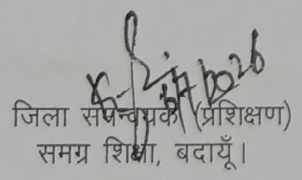 जिला समन्वयक (प्रशिक्षण)
समग्र शिक्षा, बदायूँ।